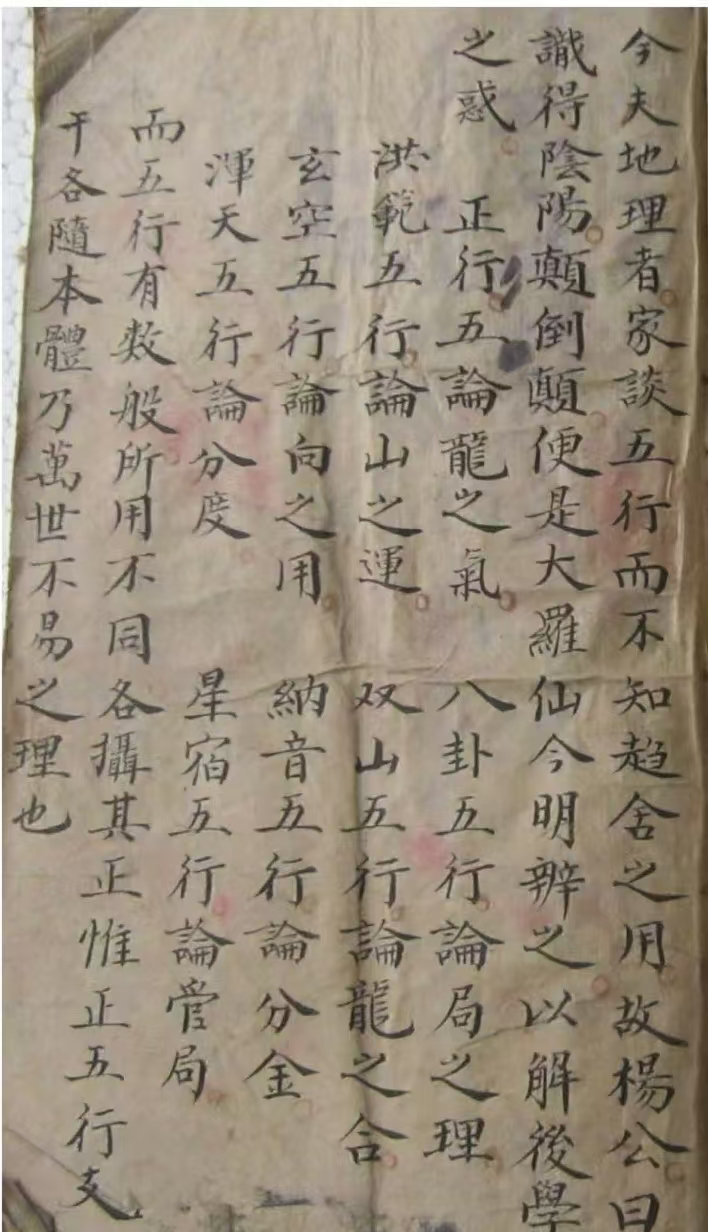 今夫地理者家談五行而不知趋舍之用故楊公曰
識得陰陽顛倒顛便是大羅仙今明辨之以解後學
之惑 正行五論龍之氣 八卦五行論局之理
洪範五行論山之運 双山五行論龍之合
玄空五行論向之用 納音五行論分金
渾天五行論分度 星宿五行論管局
而五行有数般所用不同各攝其正惟正五行支
干各隨本體乃萬世不易之理也